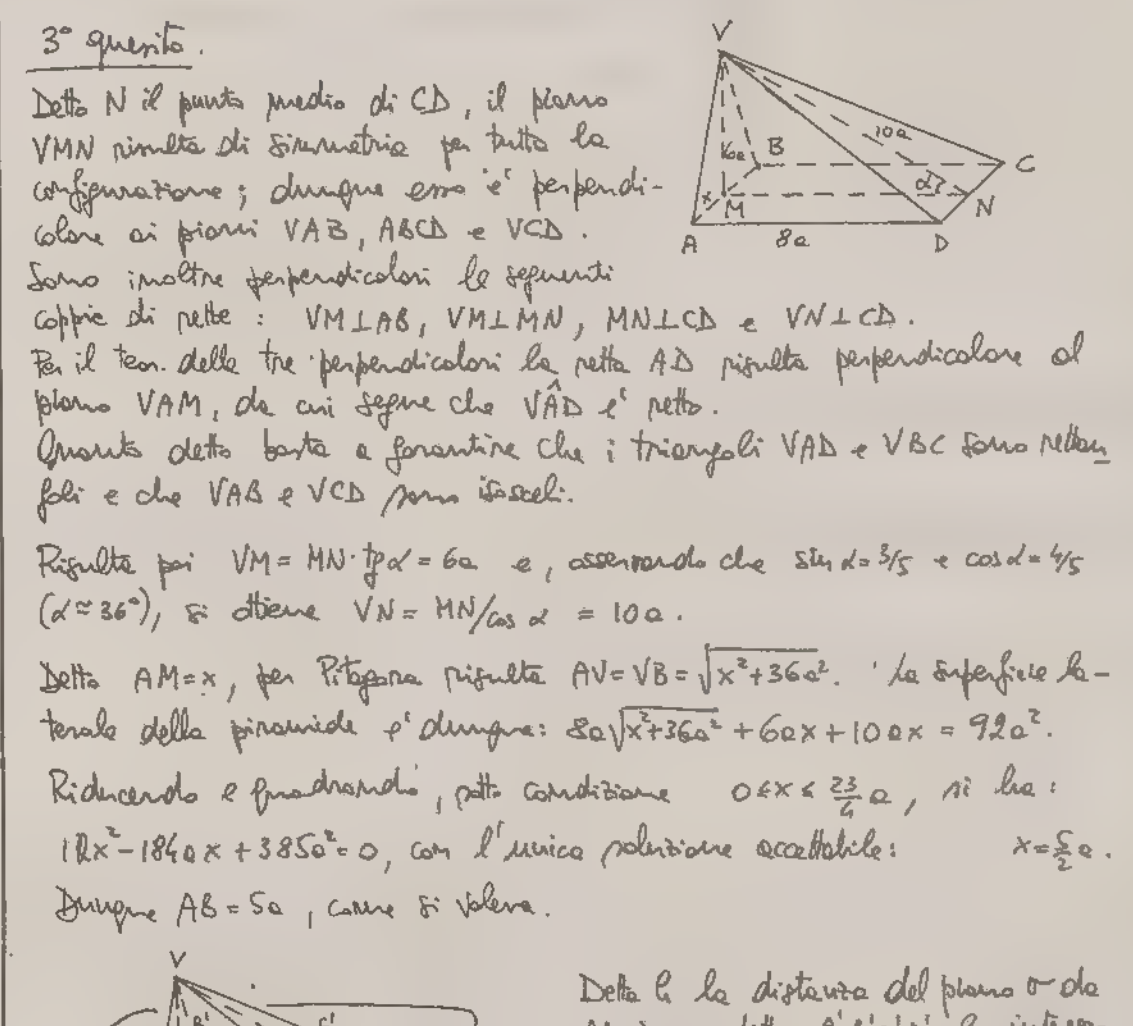 3° quesito.
Detto N il punto medio di CD, il piano
VMN risulta di simmetria per tutta la
configurazione; dunque esso e' perpendi-
colare ai piani VAB, ABCD e VCD.
Sono inoltre perpendicolari le seguenti
coppie di rette : VM⊥AB, VM⊥MN, MN⊥CD e VN⊥CD.
Per il teor. delle tre perpendicolari la retta AD risulta perpendicolare al
piano VAM, da cui segue che VÂD e' retto.
Quanto detto basta a garantire che i triangoli VAD e VBC sono rettan
goli e che VAB e VCD sono isosceli.
Risulta poi VM = MN·tgα = 6a e, osservando che sin α = 3/5 e cos α = 4/5
(α ≃ 36°), si ottiene VN = MN/cos α = 10a.
Detto AM=x, per Pitagora risulta AV=VB=√x²+36a². La superficie la-
terale della piramide e' dunque: 8a√x²+36a² + 6ax + 10ax = 92a².
Riducendo e quadrando, posta condizione 0≤x≤ 23/4 a, si ha:
12x²-184ax+385a²=0, con l'unica soluzione accettabile: x=5/2 a.
Dunque AB = 5a, come si voleva.
V
10a
6a
B
C
x
M
α
N
A
8a
D
V
B'
C'
Detta h la distanza del piano σ da